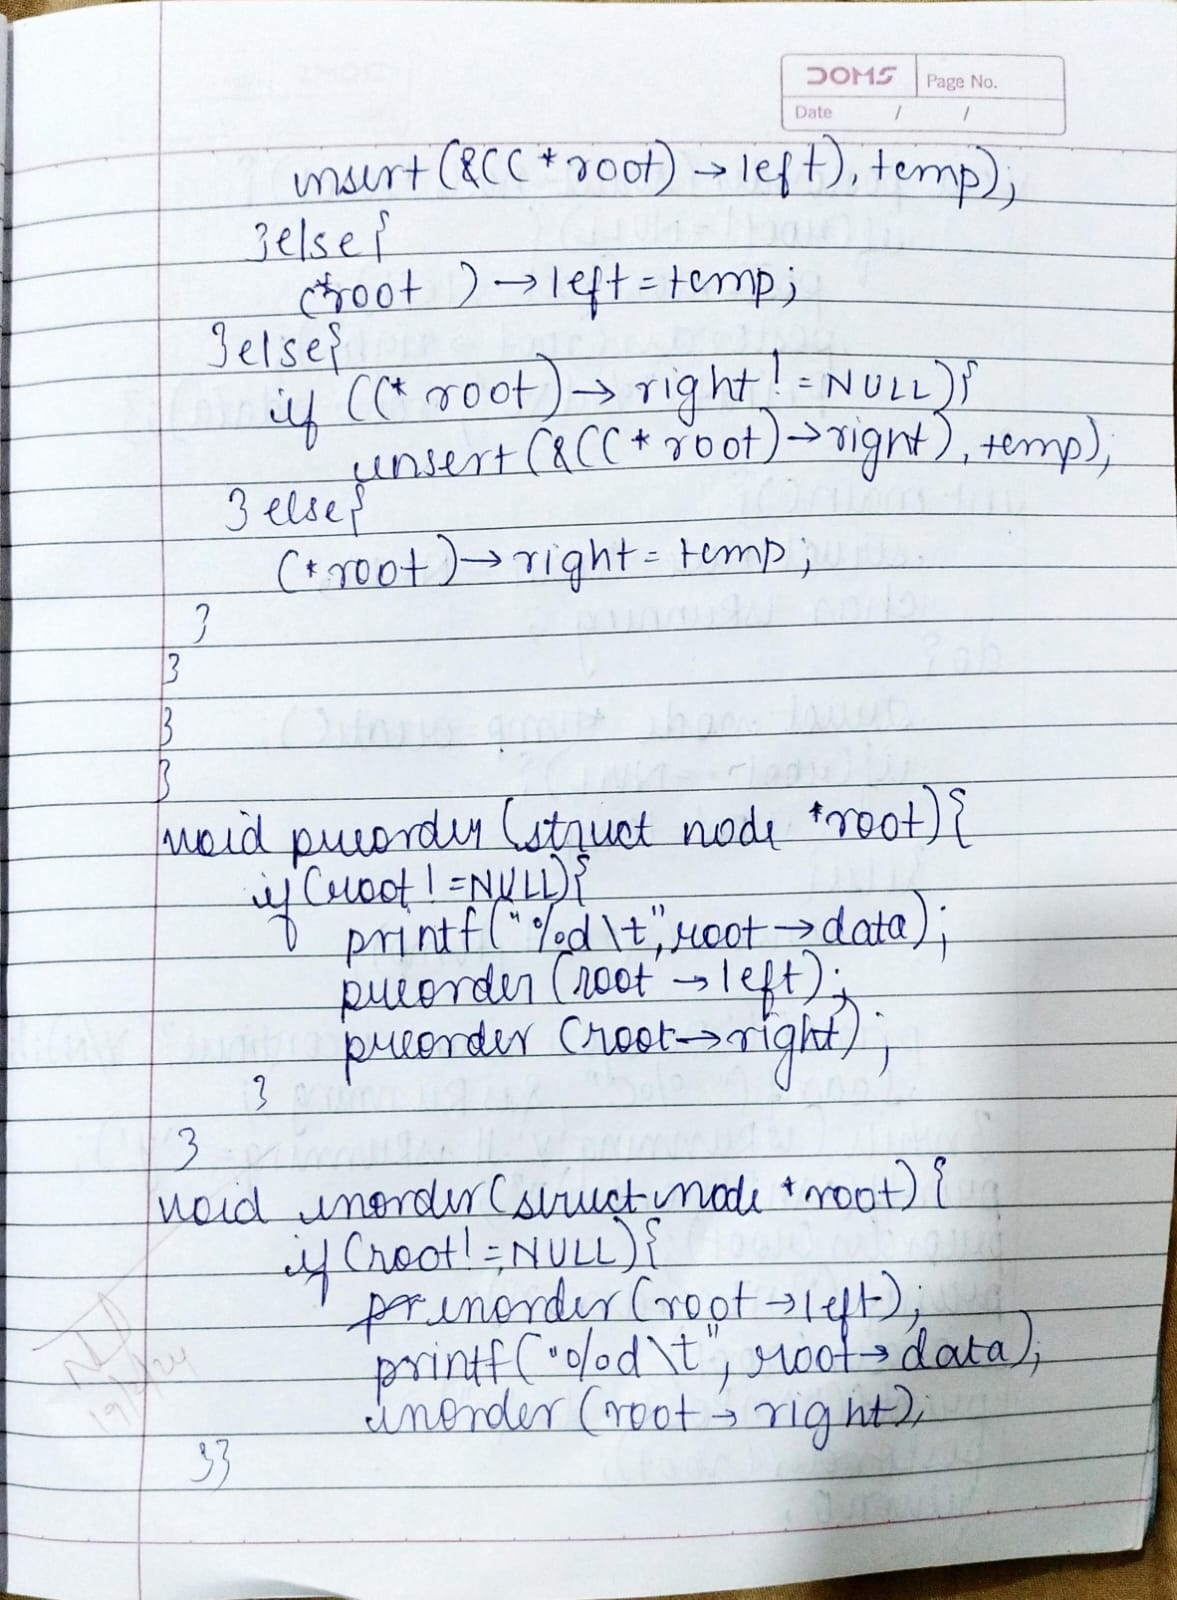 DOMS Page No.
Date / /
insert(&((*root)→left), temp);
}else{
(*root )→left=temp;
}else{
if ((*root)→right!=NULL){
insert(&((*root)→right), temp);
}else{
(*root)→right=temp;
}
}
}
}
void preorder (struct node *root){
if(root!=NULL){
printf("%d\t",root→data);
preorder(root→left);
preorder (root→right);
}
}
void inorder(struct node *root){
if(root!=NULL){
inorder(root→left);
printf("%d\t", root→data);
inorder(root→right);
}}